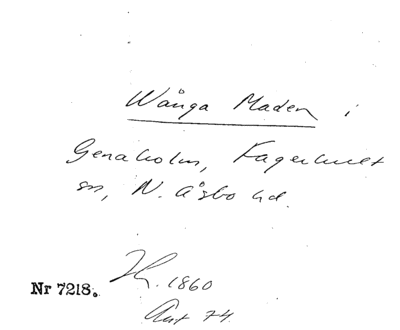 Wånga Maden i
Genaholm, Fagerhult
sn, N. Åsbo hd.
Nr 7218.
1860
Ant 74